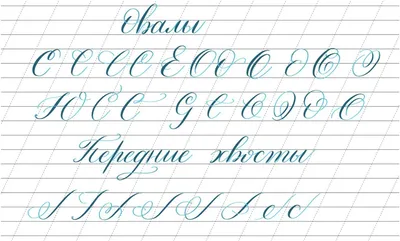 Овалы
С С С С Е О О О О О О
Ю С С G С О О О О
Передние хвосты